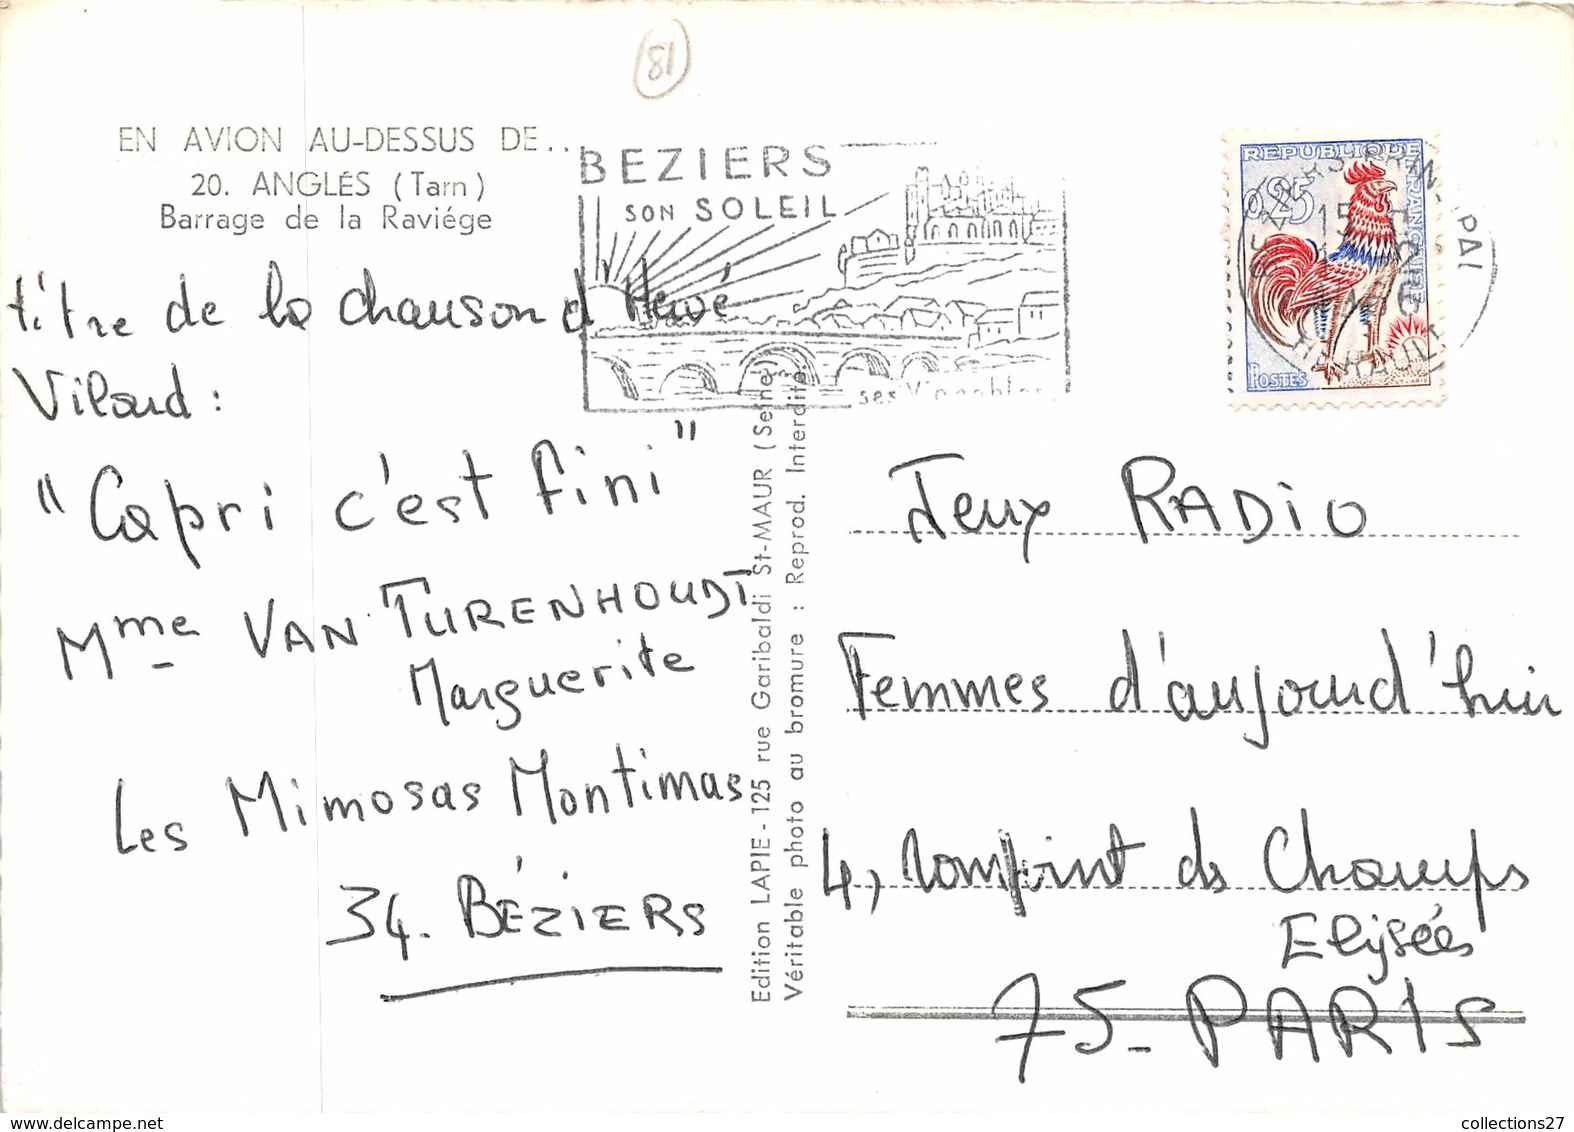 81
EN AVION AU-DESSUS DE...
20. ANGLÉS (Tarn)
Barrage de la Raviége
BEZIERS
SON SOLEIL
ses
REPUBLIQUE FRANÇAISE
0,25
POSTES
HERAULT
titre de la chanson d'Hervé
Vilard :
"Capri c'est fini"
Mme VAN TURENHOUDT
Marguerite
Les Mimosas Montimas
34. BÉZIERS
Edition LAPIE - 125 rue Garibaldi St-MAUR (Seine)
Véritable photo au bromure : Reprod. Interdite.
Jeux RADIO
Femmes d'aujourd'hui
4, rompoint ds Champs
Elysées
75_ PARIS
collections27